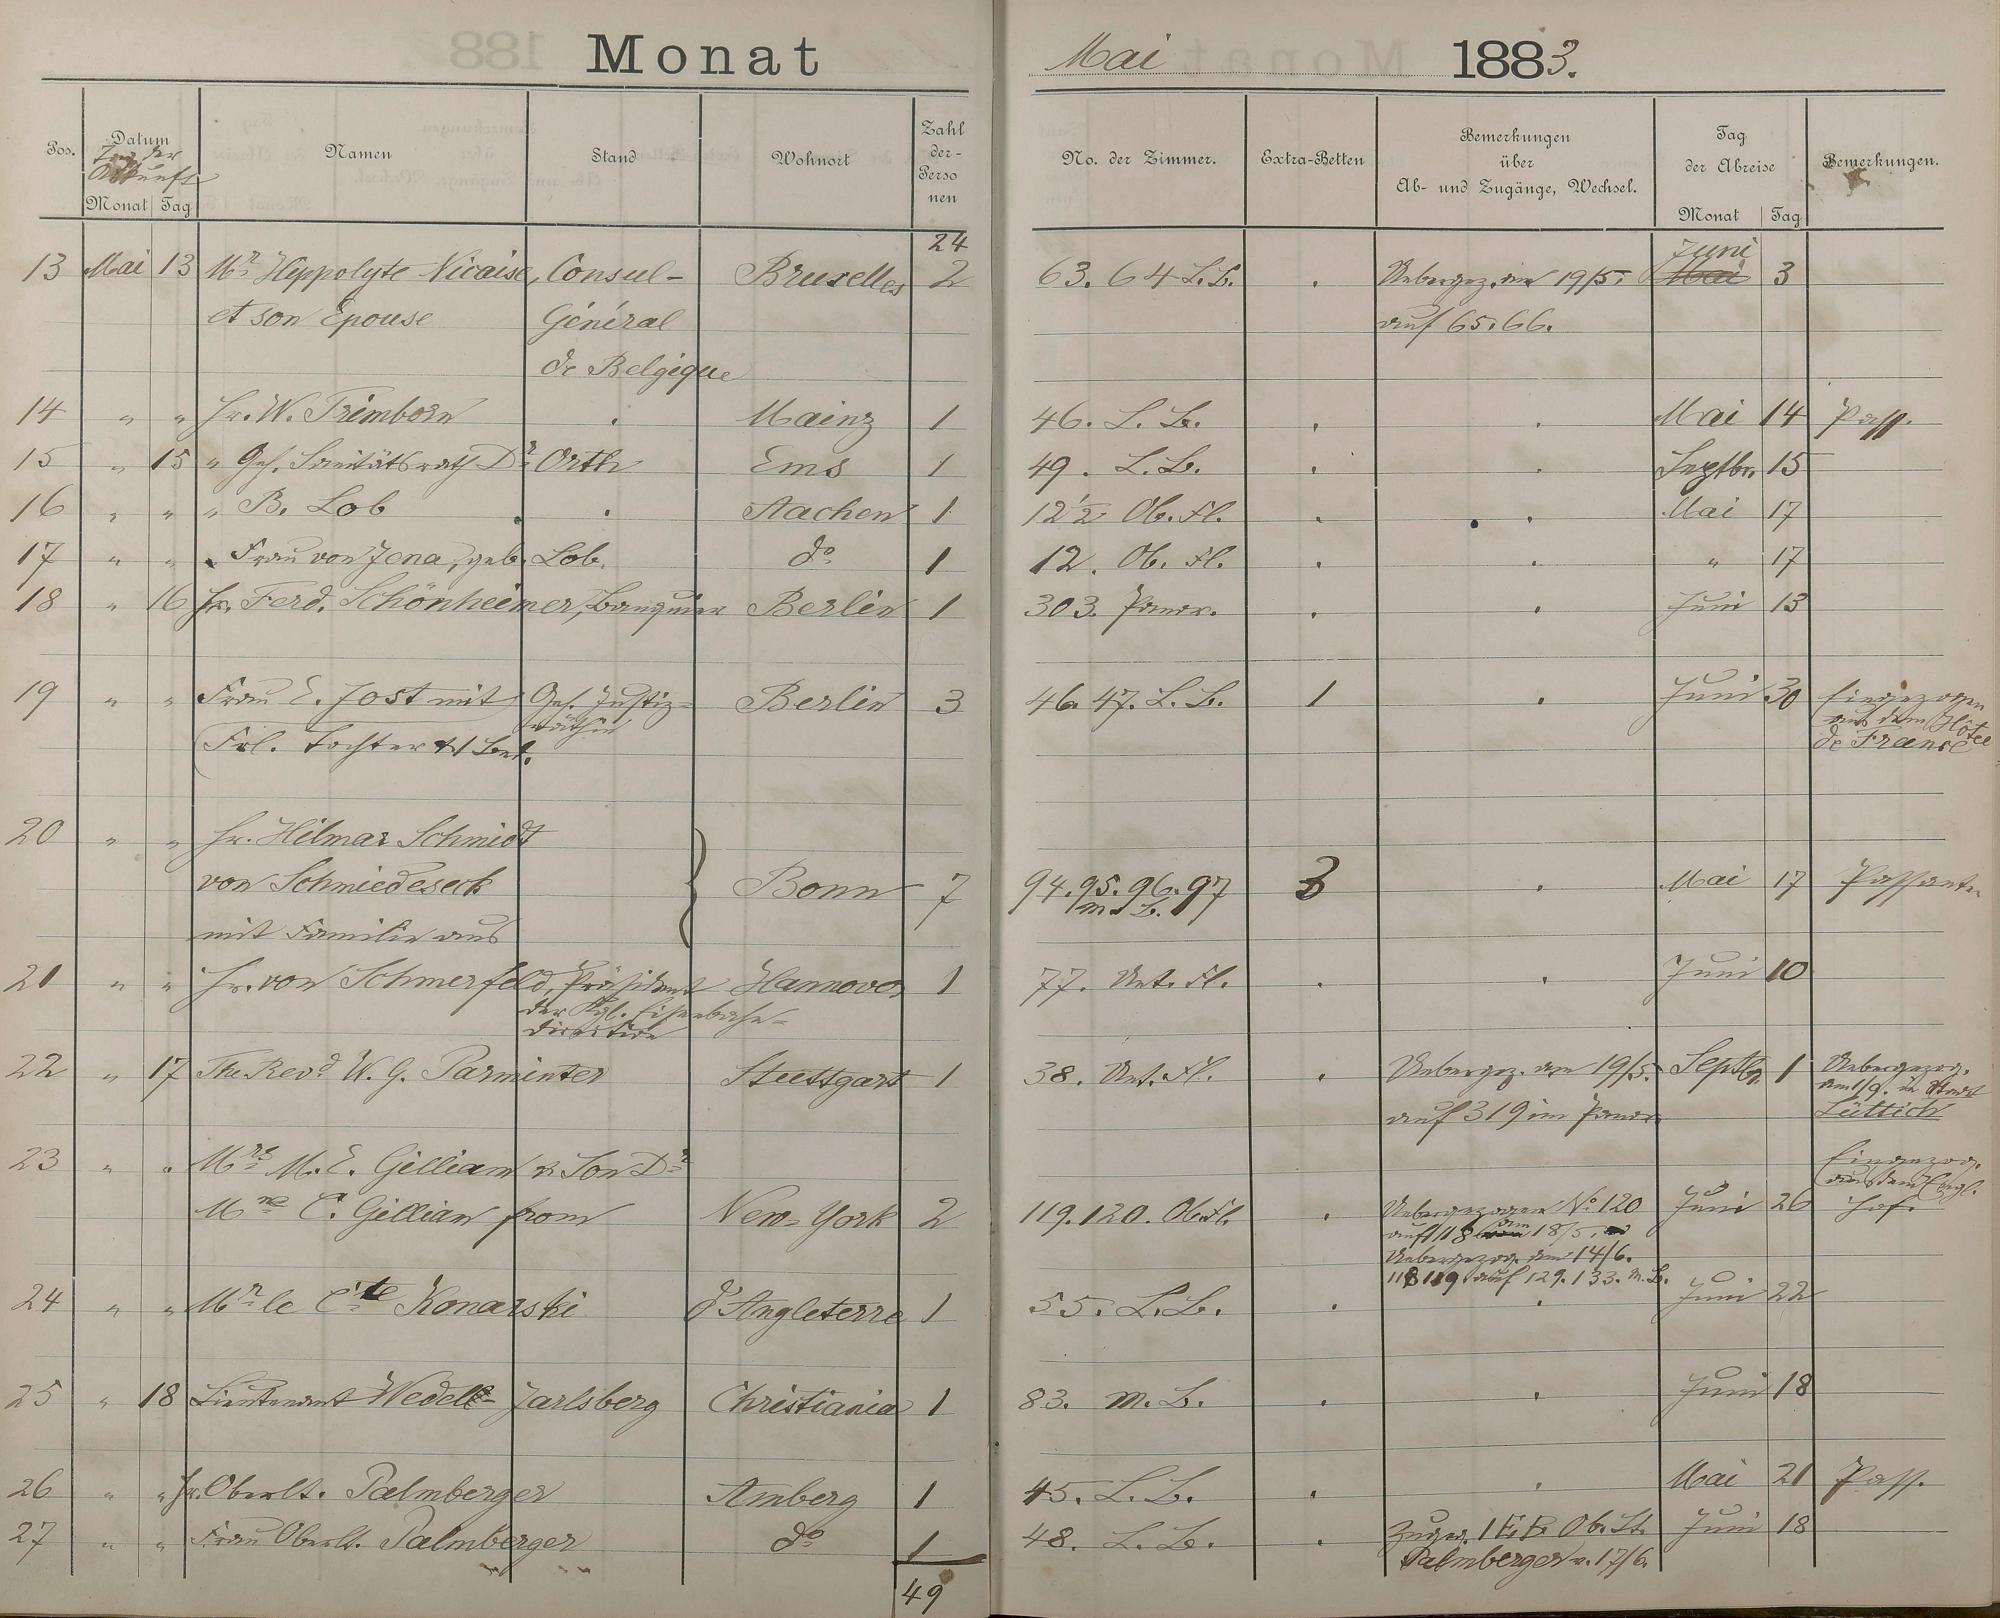 Monat Mai 1883.
Pos. Datum Namen Stand Wohnort Zahl der Personen No. der Zimmer. Extra-Betten Bemerkungen über Ab- und Zugänge, Wechsel. Tag der Abreise Bemerkungen.
Tag der Ankunft
Monat Tag Monat Tag
24
13 Mai 13 Mr. Hippolyte Nicaise, Consul- Bruxelles 2 63. 64 L.B. . Uebergez. am 19/5. Juni Mai 3
et son Epouse Général auf 65. 66.
de Belgique
14 " " Hr. W. Trimborn . Mainz 1 46. L. B. . . Mai 14 Pass.
15 " 15 " Geh. Sanitätsrath Dr. Orth Ems 1 49. L.B. . . Septbr. 15
16 " " " B. Lob . Aachen 1 12 1/2 Ob. Fl. . . Mai 17
17 " " Frau von Jena, geb. Lob. do 1 12. Ob. Fl. . . " 17
18 " 16 Hr. Ferd. Schönheimer, Banquier Berlin 1 303. Panor. . . Juni 13
19 " " Frau E. Jost mit Geh. Justiz- Berlin 3 46. 47. L. B. 1 . Juni 30 Eingezogen
räthin aus dem Hôtel
Frl. Tochter & 1 Bed. de France
20 " " Hr. Hilmar Schmidt
von Schmiedeseck Bonn 7 94. 95. 96. 97 3 . Mai 17 Passanten
m. B.
mit Familie aus
21 " " Hr. von Schmerfeld, Präsident Hannover 1 77. Unt. Fl. . . Juni 10
der Kgl. Eisenbahn-
direction
22 " 17 The Revd. W. G. Parminter Stuttgart 1 38. Unt. Fl. . Uebergez. am 19/5. Septbr. 1 Uebergezog.
am 1/9. in Stadt
auf 319 im Panor. Lüttich
23 " " Mrs M. E. Gillian & Son Dr. Eingezog.
aus dem Engl.
Mr. C. Gillian from New-York 2 119. 120. Ob. Fl. . Uebergezogen No. 120 Juni 26 Hof.
auf 118 am 18/5.
Uebergezog. am 14/6.
118 119 auf 129. 133. M.B.
24 " " Mr. le Cte Konarski d'Angleterre 1 55. L.B. . . Juni 22
25 " 18 Lieutenant Wedell-Jarlsberg Christiania 1 83. M. B. . . Juni 18
26 " " Hr. Oberlt. Palmberger Amberg 1 45. L. B. . . Mai 21 Pass.
27 " " Frau Oberlt. Palmberger do 1 48. L. B. . Zugez. 1 E.B. Ob. Lt. Juni 18
Palmberger v. 17/6.
49